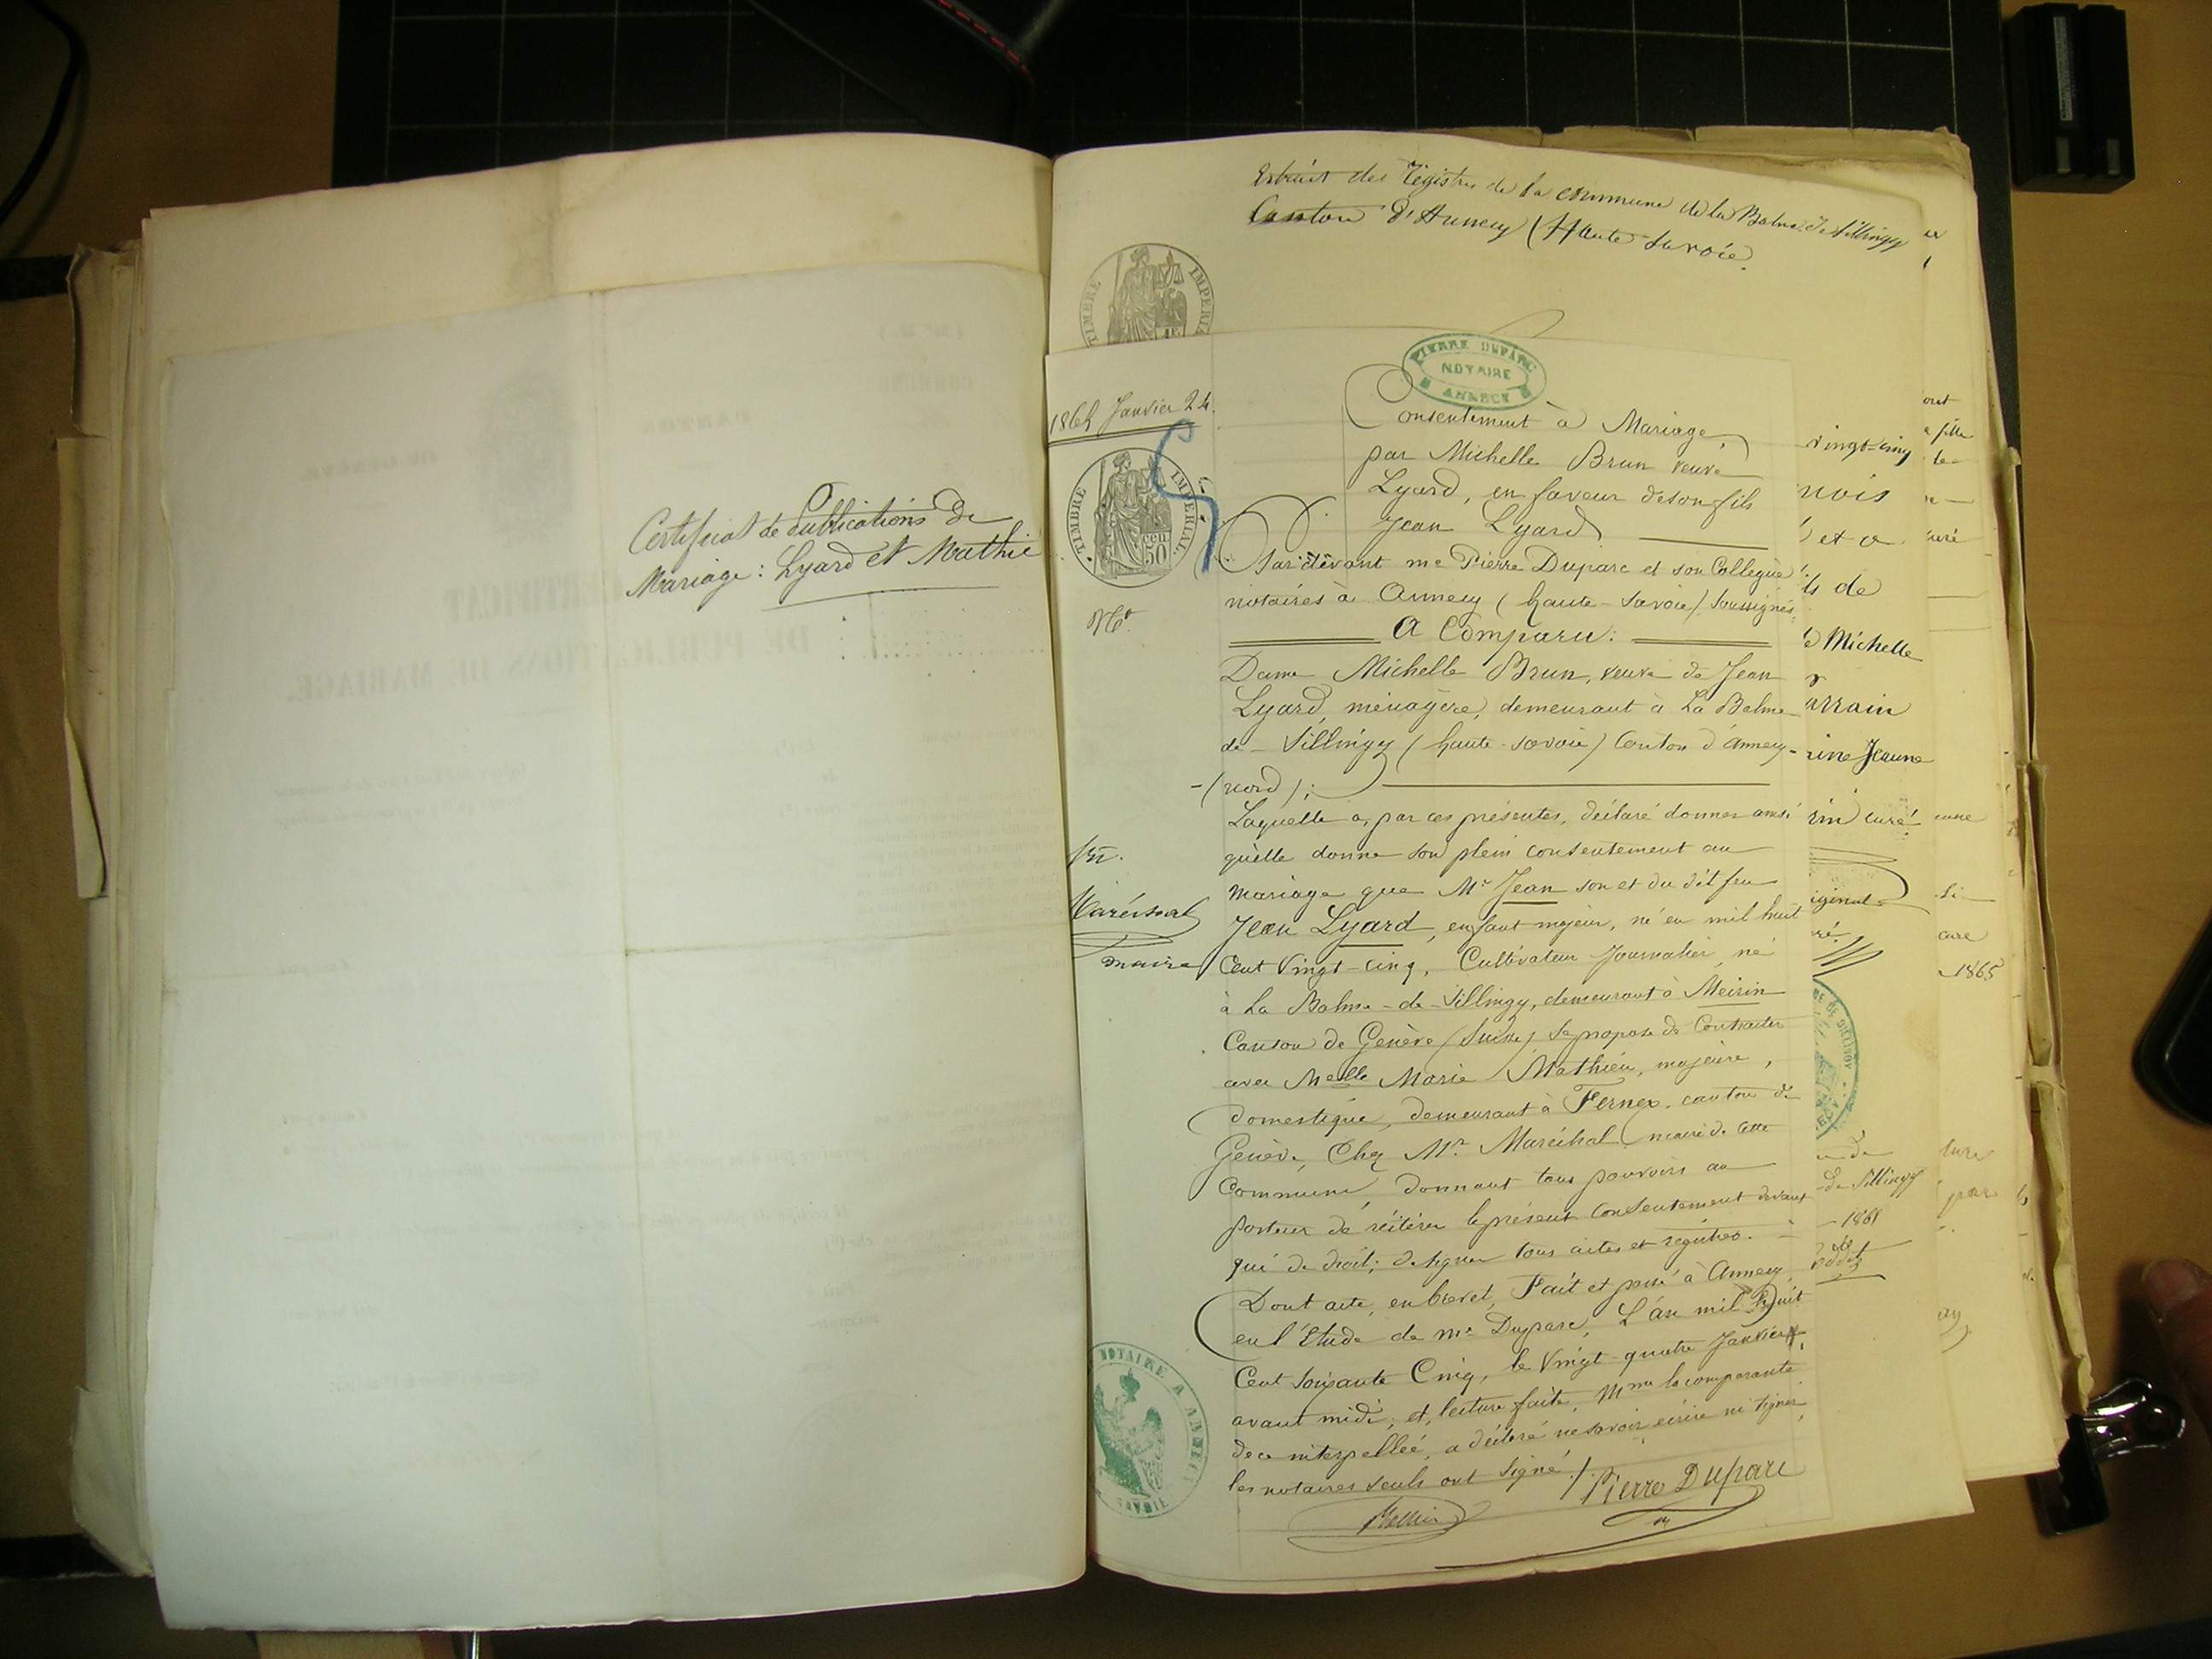 Certificat de Publications de
Mariage : Lyard et Mathie
Extrait des Registres de la commune de la Balme de Sillingy
Canton d'Annecy (Haute Savoie)
TIMBRE IMPERIAL
PIERRE DUPARC
NOTAIRE
ANNECY
1865 Janvier 24.
TIMBRE IMPERIAL
50 cen
Consentement à Mariage,
par Michelle Brun veuve
Lyard, en faveur de son fils
Jean Lyard
Par devant me Pierre Duparc et son Collègue
notaires à Annecy (haute-Savoie) Soussignés
A Comparu:
Dame Michelle Brun, veuve de Jean
Lyard, ménagère, demeurant à La Balme
de-Sillingy (haute-savoie) Canton d'annecy-
-(nord);
Laquelle a, par ces présentes, déclaré donner ainsi
qu'elle donne son plein consentement au
mariage que Mr Jean son et du dit feu
Jean Lyard, enfant majeur, né en mil huit
Cent Vingt-cinq, Cultivateur Journalier, né
à La Balme-de-Sillingy, demeurant à Meirin
Canton de Genève (Suisse) se propose de Contracter
avec Melle Marie Mathieu, majeure,
domestique, demeurant à Fernex. canton de
Genève, Chez Mr. Maréchal (maire de cette
Commune, donnant tous pouvoirs au
porteur de réitérer le présent Consentement devant
qui de droit; de signer tous actes et registres.
Dont acte, en brevet, Fait et passé à Annecy
en l'Etude de me Duparc, L'an mil huit
Cent soixante Cinq, le Vingt-quatre Janvier,
avant midi; et, lecture faite, Mme la comparante
de ce interpellée, a déclaré ne savoir écrire ni signer
les notaires seuls ont signé./.
Pierre Duparc
maire
NOTAIRE A ANNECY
SAVOIE
vingt-cinq
et a
de
Michelle
Jeanne
curé
de Sillingy
1865